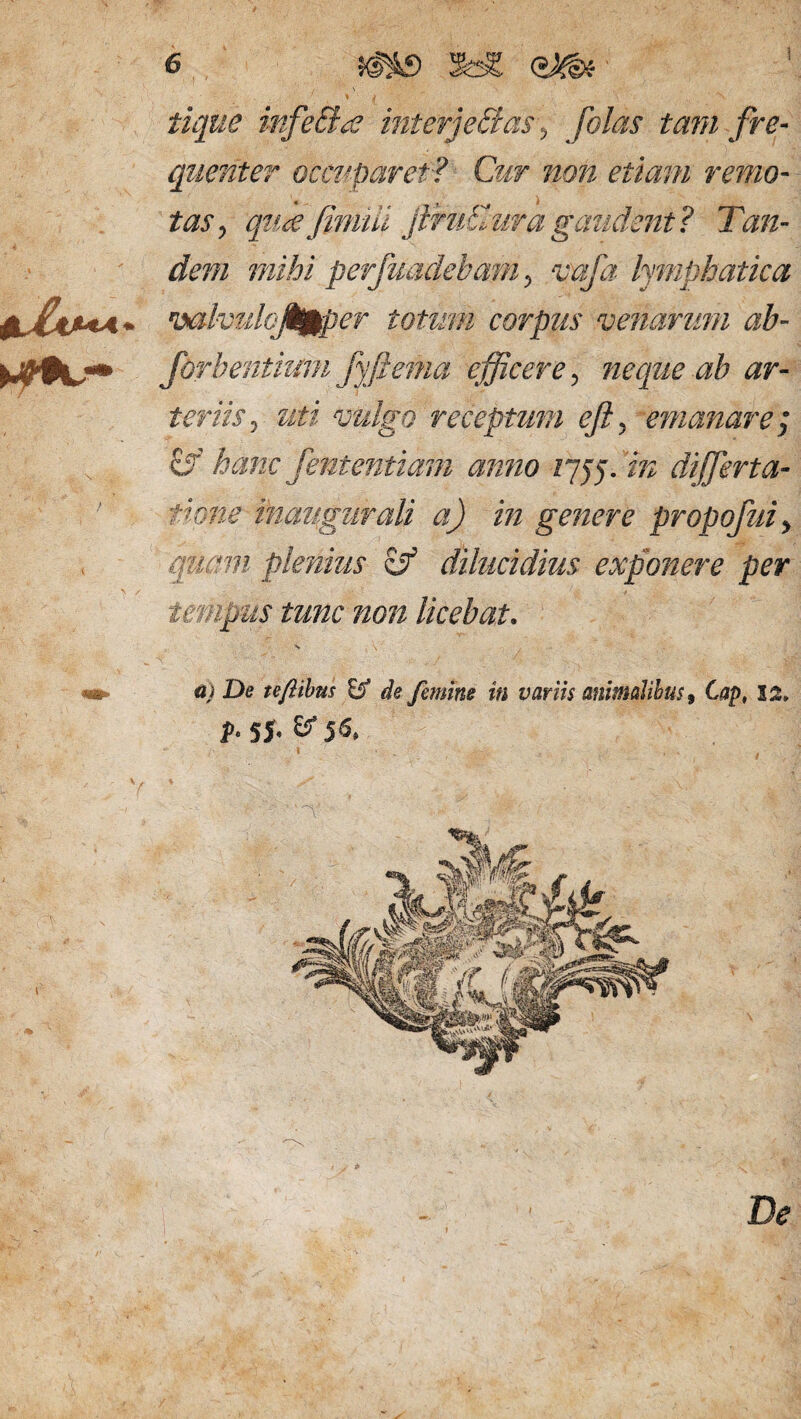 6
tique infectæ interjectas, ſolas tam fre-
quenter occuparet? Cur non etiam remo-
tas, quæ ſimili ſtructura gaudent? Tan-
dem mihi perſuadebam, vaſa lymphatica
per totum corpus venarum ab-
ſorbentium ſyſtema efficere, neque ab ar-
teriis, uti vulgo receptum eſt, emanare;
& hanc ſententiam anno 1755. in diſſerta-
tione inaugurali a) in genere propoſui,
quam plenius & dilucidius exponere per
tempus tunc non licebat.
a) De teſtibus & de ſemine in variis animalibus, Cap. 12.
p. 55. & 56.
De